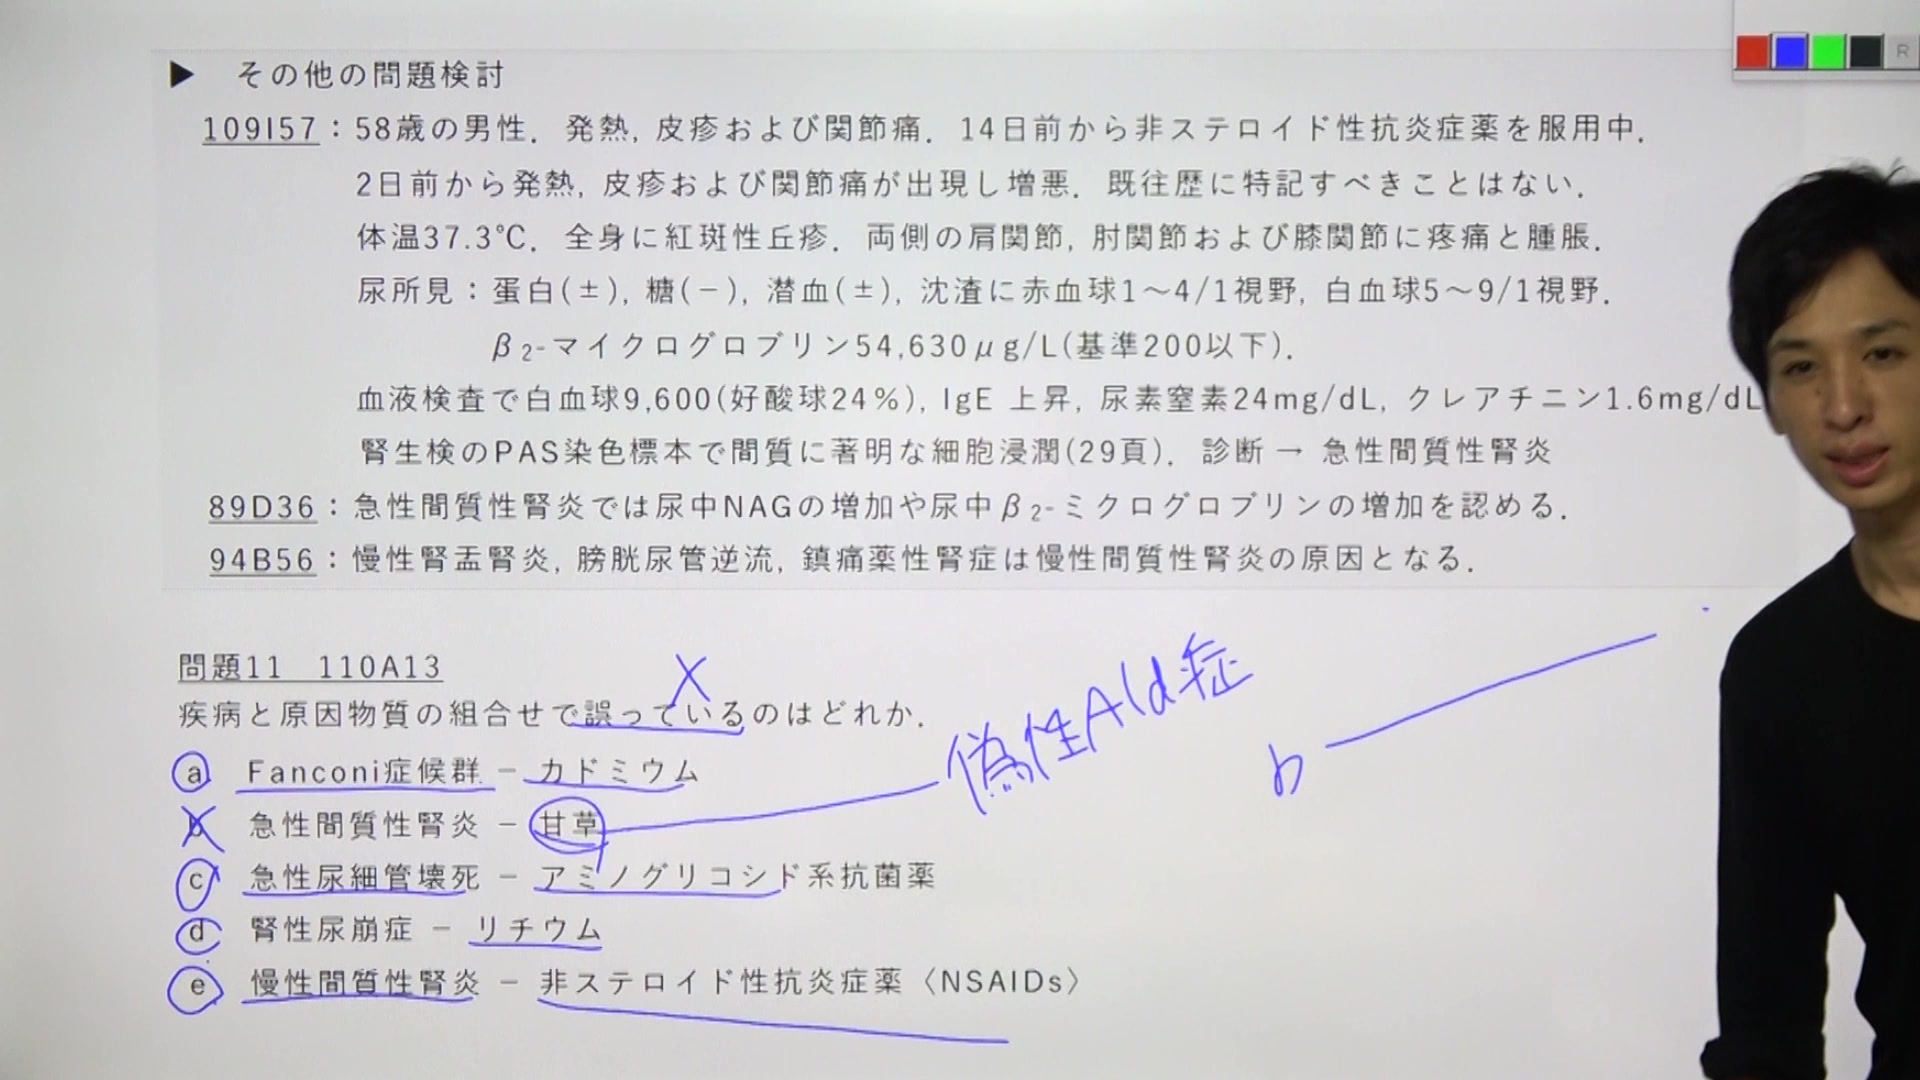 ▶ その他の問題検討
109I57：58歳の男性．発熱, 皮疹および関節痛．14日前から非ステロイド性抗炎症薬を服用中．
2日前から発熱, 皮疹および関節痛が出現し増悪．既往歴に特記すべきことはない．
体温37.3℃．全身に紅斑性丘疹．両側の肩関節, 肘関節および膝関節に疼痛と腫脹．
尿所見：蛋白(±), 糖(−), 潜血(±), 沈渣に赤血球1〜4/1視野, 白血球5〜9/1視野．
β2-マイクログロブリン54,630μg/L(基準200以下)．
血液検査で白血球9,600(好酸球24%), IgE 上昇, 尿素窒素24mg/dL, クレアチニン1.6mg/dL
腎生検のPAS染色標本で間質に著明な細胞浸潤(29頁)．診断 → 急性間質性腎炎
89D36：急性間質性腎炎では尿中NAGの増加や尿中β2-ミクログロブリンの増加を認める．
94B56：慢性腎盂腎炎, 膀胱尿管逆流, 鎮痛薬性腎症は慢性間質性腎炎の原因となる．
問題11 110A13
X
疾病と原因物質の組合せで誤っているのはどれか．
偽性Ald症
b
a Fanconi症候群 − カドミウム
b 急性間質性腎炎 − 甘草
c 急性尿細管壊死 − アミノグリコシド系抗菌薬
d 腎性尿崩症 − リチウム
e 慢性間質性腎炎 − 非ステロイド性抗炎症薬〈NSAIDs〉
R